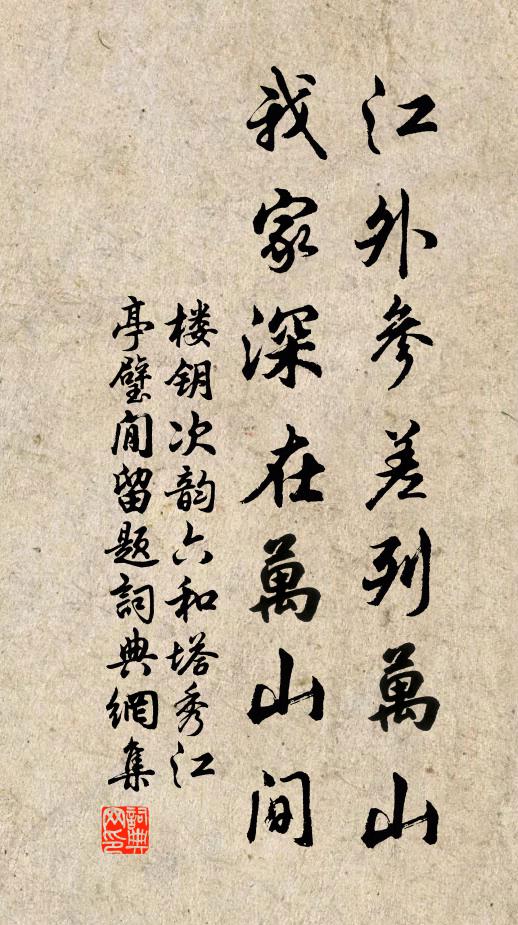 江外參差列萬山
我家深在萬山間
楼钥次韵六和塔秀江
亭壁间留题詞典網集
詞典网印